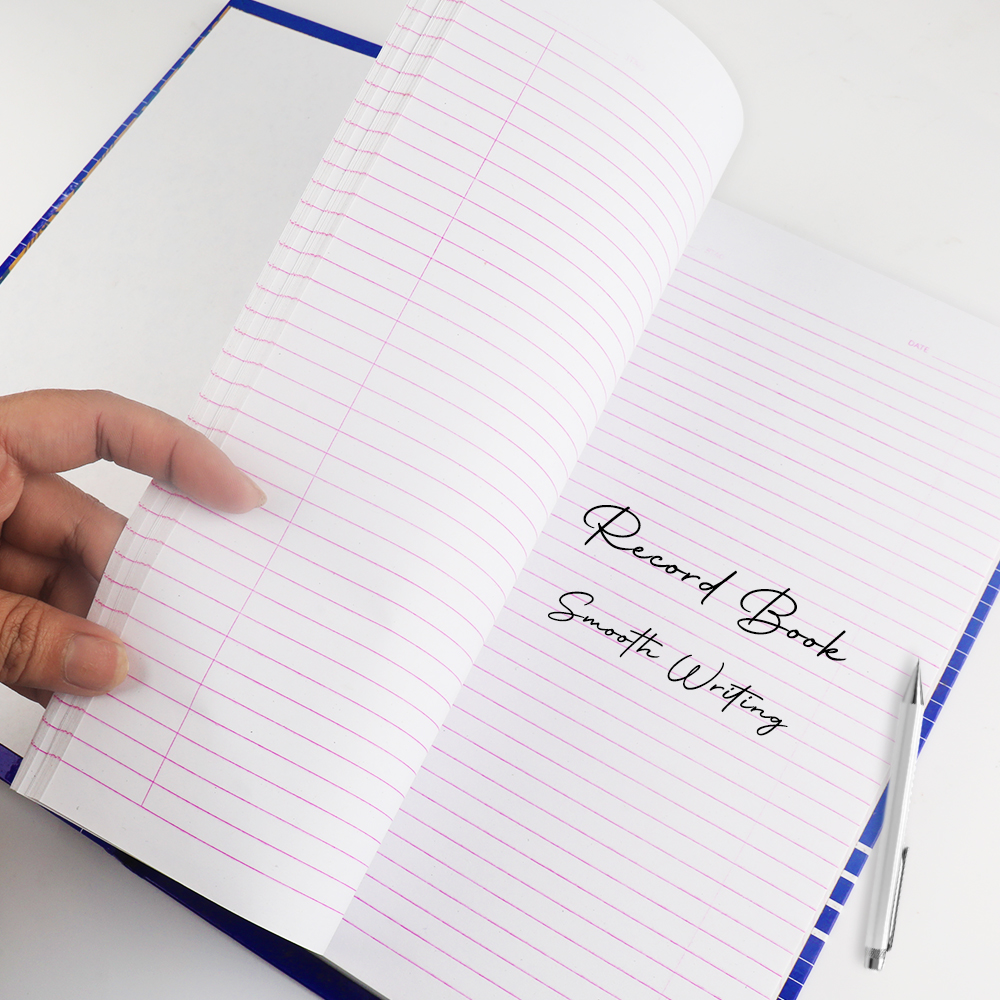 DATE
Record Book
Smooth Writing